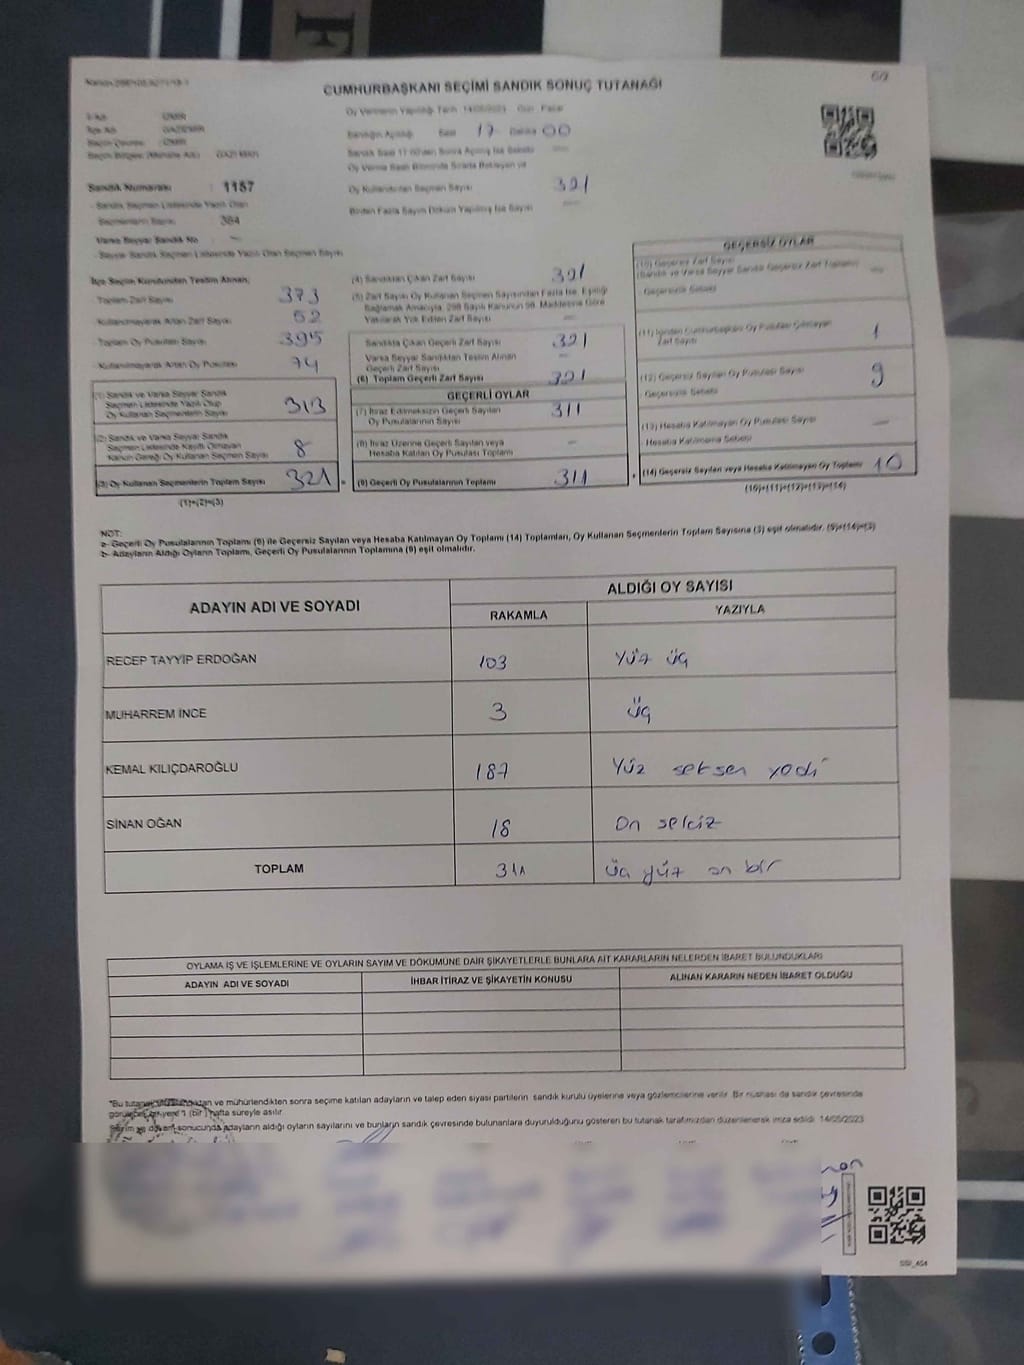 CUMHURBAŞKANI SEÇİMİ SANDIK SONUÇ TUTANAĞI
Oy Vermenin Yapıldığı Tarih 14/05/2023 Gün Pazar
Sandığın Açıldığı Saat 17 Dakika 00
Sandık Saat 17.00'den Sonra Açılmış İse Sebebi
Oy Kullandırılan Seçmen Sayısı 321
Birden Fazla Sayım Döküm Yapılmış İse Sayısı
İl Adı İZMİR
İlçe Adı GAZİEMİR
Seçim Çevresi İZMİR
Sandık Numarası : 1157
- Sandık Seçmen Listesinde Yazılı Olan
Seçmenlerin Sayısı 384
Varsa Seyyar Sandık No
- Seyyar Sandık Seçmen Listesinde Yazılı Olan Seçmen Sayısı
İlçe Seçim Kurulundan Teslim Alınan;
Toplam Zarf Sayısı 373
-Kullanılmayarak Artan Zarf Sayısı 52
Toplam Oy Pusulası Sayısı 395
-Kullanılmayarak Artan Oy Pusulası 74
(1) Sandık ve Varsa Seyyar Sandık
Seçmen Listesinde Yazılı Olup
Oy Kullanan Seçmenlerin Sayısı 313
(2) Sandık ve Varsa Seyyar Sandık
Seçmen Listesinde Kayıtlı Olmayan
Kanun Gereği Oy Kullanan Seçmen Sayısı 8
(3) Oy Kullanan Seçmenlerin Toplam Sayısı 321
(1)+(2)=(3)
(4) Sandıktan Çıkan Zarf Sayısı 321
(5) Zarf Sayısı Oy Kullanan Seçmen Sayısından Fazla İse, Eşitliği
Sağlamak Amacıyla, 298 Sayılı Kanunun 98. Maddesine Göre
Yakılarak Yok Edilen Zarf Sayısı
Sandıkta Çıkan Geçerli Zarf Sayısı 321
Varsa Seyyar Sandıktan Teslim Alınan
Geçerli Zarf Sayısı
(6) Toplam Geçerli Zarf Sayısı 321
GEÇERLİ OYLAR
(7) İtiraz Edilmeksizin Geçerli Sayılan
Oy Pusulalarının Sayısı 311
(8) İtiraz Üzerine Geçerli Sayılan veya
Hesaba Katılan Oy Pusulası Toplamı
(9) Geçerli Oy Pusulalarının Toplamı 311
GEÇERSİZ OYLAR
(10) Geçersiz Zarf Sayısı
(Sandık ve Varsa Seyyar Sandık Geçersiz Zarf Toplamı)
- Geçersizlik Sebebi
(11) İçinden Cumhurbaşkanı Oy Pusulası Çıkmayan
Zarf Sayısı 1
(12) Geçersiz Sayılan Oy Pusulası Sayısı 9
Geçersizlik Sebebi
(13) Hesaba Katılmayan Oy Pusulası Sayısı
- Hesaba Katılmama Sebebi
(14) Geçersiz Sayılan veya Hesaba Katılmayan Oy Toplamı 10
(10)+(11)+(12)+(13)=(14)
NOT:
a- Geçerli Oy Pusulalarının Toplamı (9) ile Geçersiz Sayılan veya Hesaba Katılmayan Oy Toplamı (14) Toplamları, Oy Kullanan Seçmenlerin Toplam Sayısına (3) eşit olmalıdır. (9)+(14)=(3)
b- Adayların Aldığı Oyların Toplamı, Geçerli Oy Pusulalarının Toplamına (9) eşit olmalıdır.
ADAYIN ADI VE SOYADI
ALDIĞI OY SAYISI
RAKAMLA YAZIYLA
RECEP TAYYİP ERDOĞAN 103 Yüz üç
MUHARREM İNCE 3 üç
KEMAL KILIÇDAROĞLU 187 Yüz seksen yedi
SİNAN OĞAN 18 On sekiz
TOPLAM 311 üç yüz on bir
OYLAMA İŞ VE İŞLEMLERİNE VE OYLARIN SAYIM VE DÖKÜMÜNE DAİR ŞİKAYETLERLE BUNLARA AİT KARARLARIN NELERDEN İBARET BULUNDUKLARI
ADAYIN ADI VE SOYADI İHBAR İTİRAZ VE ŞİKAYETİN KONUSU ALINAN KARARIN NEDEN İBARET OLDUĞU
ve mühürlendikten sonra seçime katılan adayların ve talep eden siyasi partilerin sandık kurulu üyelerine veya gözlemcilerine verilir. Bir nüshası da sandık çevresinde
1 (bir) hafta süreyle asılır.
sonucunda adayların aldığı oyların sayılarını ve bunların sandık çevresinde bulunanlara duyurulduğunu gösteren bu tutanak tarafımızdan düzenlenerek imza edildi. 14/05/2023